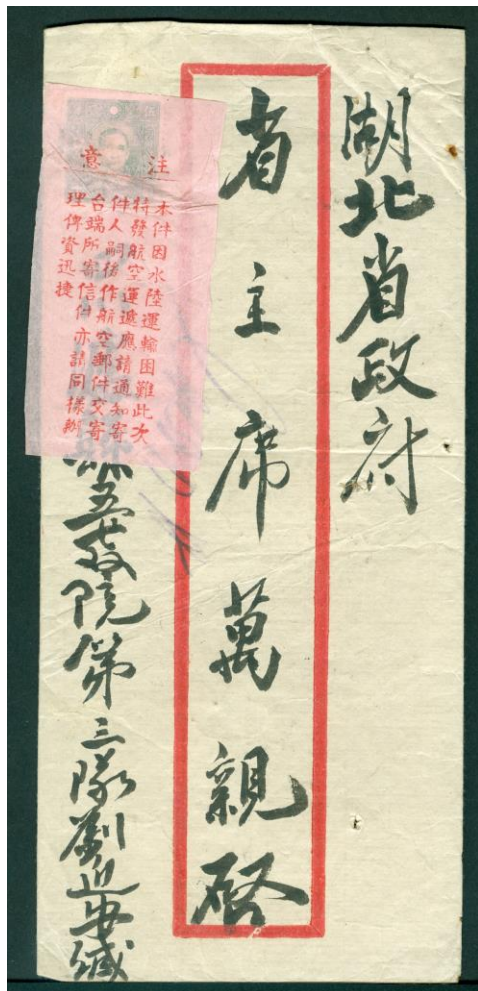 湖北省政府
省主席萬親啓
注意
本件因水陸運輸困難此次
特發航空運遞應請通知寄
件人嗣後作航空郵件交寄
台端所寄信件亦請同樣辦
理俾資迅捷
縣五教院第三隊劉迎安緘